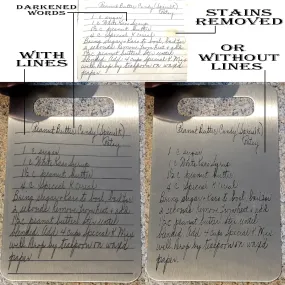 DARKENED
WORDS
STAINS
REMOVED
WITH
LINES
OR
WITHOUT
LINES
Peanut Butter Candy (Special K)
Patsy
1 c sugar
1 c White Karo Syrup
1½ c peanut butter
4 c Special K Cereal
Bring sugar & Karo to boil, boil for
a seconds remove from heat & add
1½ c peanut butter stir until
blended. Add 4 cups Special K. Mix
well. Drop by teaspoon on waxed
paper.
Peanut Butter Candy (Special K)
Patsy
1 c sugar
1 c White Karo Syrup
1½ c peanut butter
4 c Special K Cereal
Bring sugar & Karo to boil, boil for
a seconds remove from heat & add
1½ c peanut butter stir until
blended. Add 4 cups Special K. Mix
well. Drop by teaspoon on waxed
paper.
Peanut Butter Candy (Special K)
Patsy
1 c sugar
1 c White Karo Syrup
1½ c peanut butter
4 c Special K Cereal
Bring sugar & Karo to boil, boil for
a seconds remove from heat & add
1½ c peanut butter stir until
blended. Add 4 cups Special K. Mix
well. Drop by teaspoon on waxed
paper.